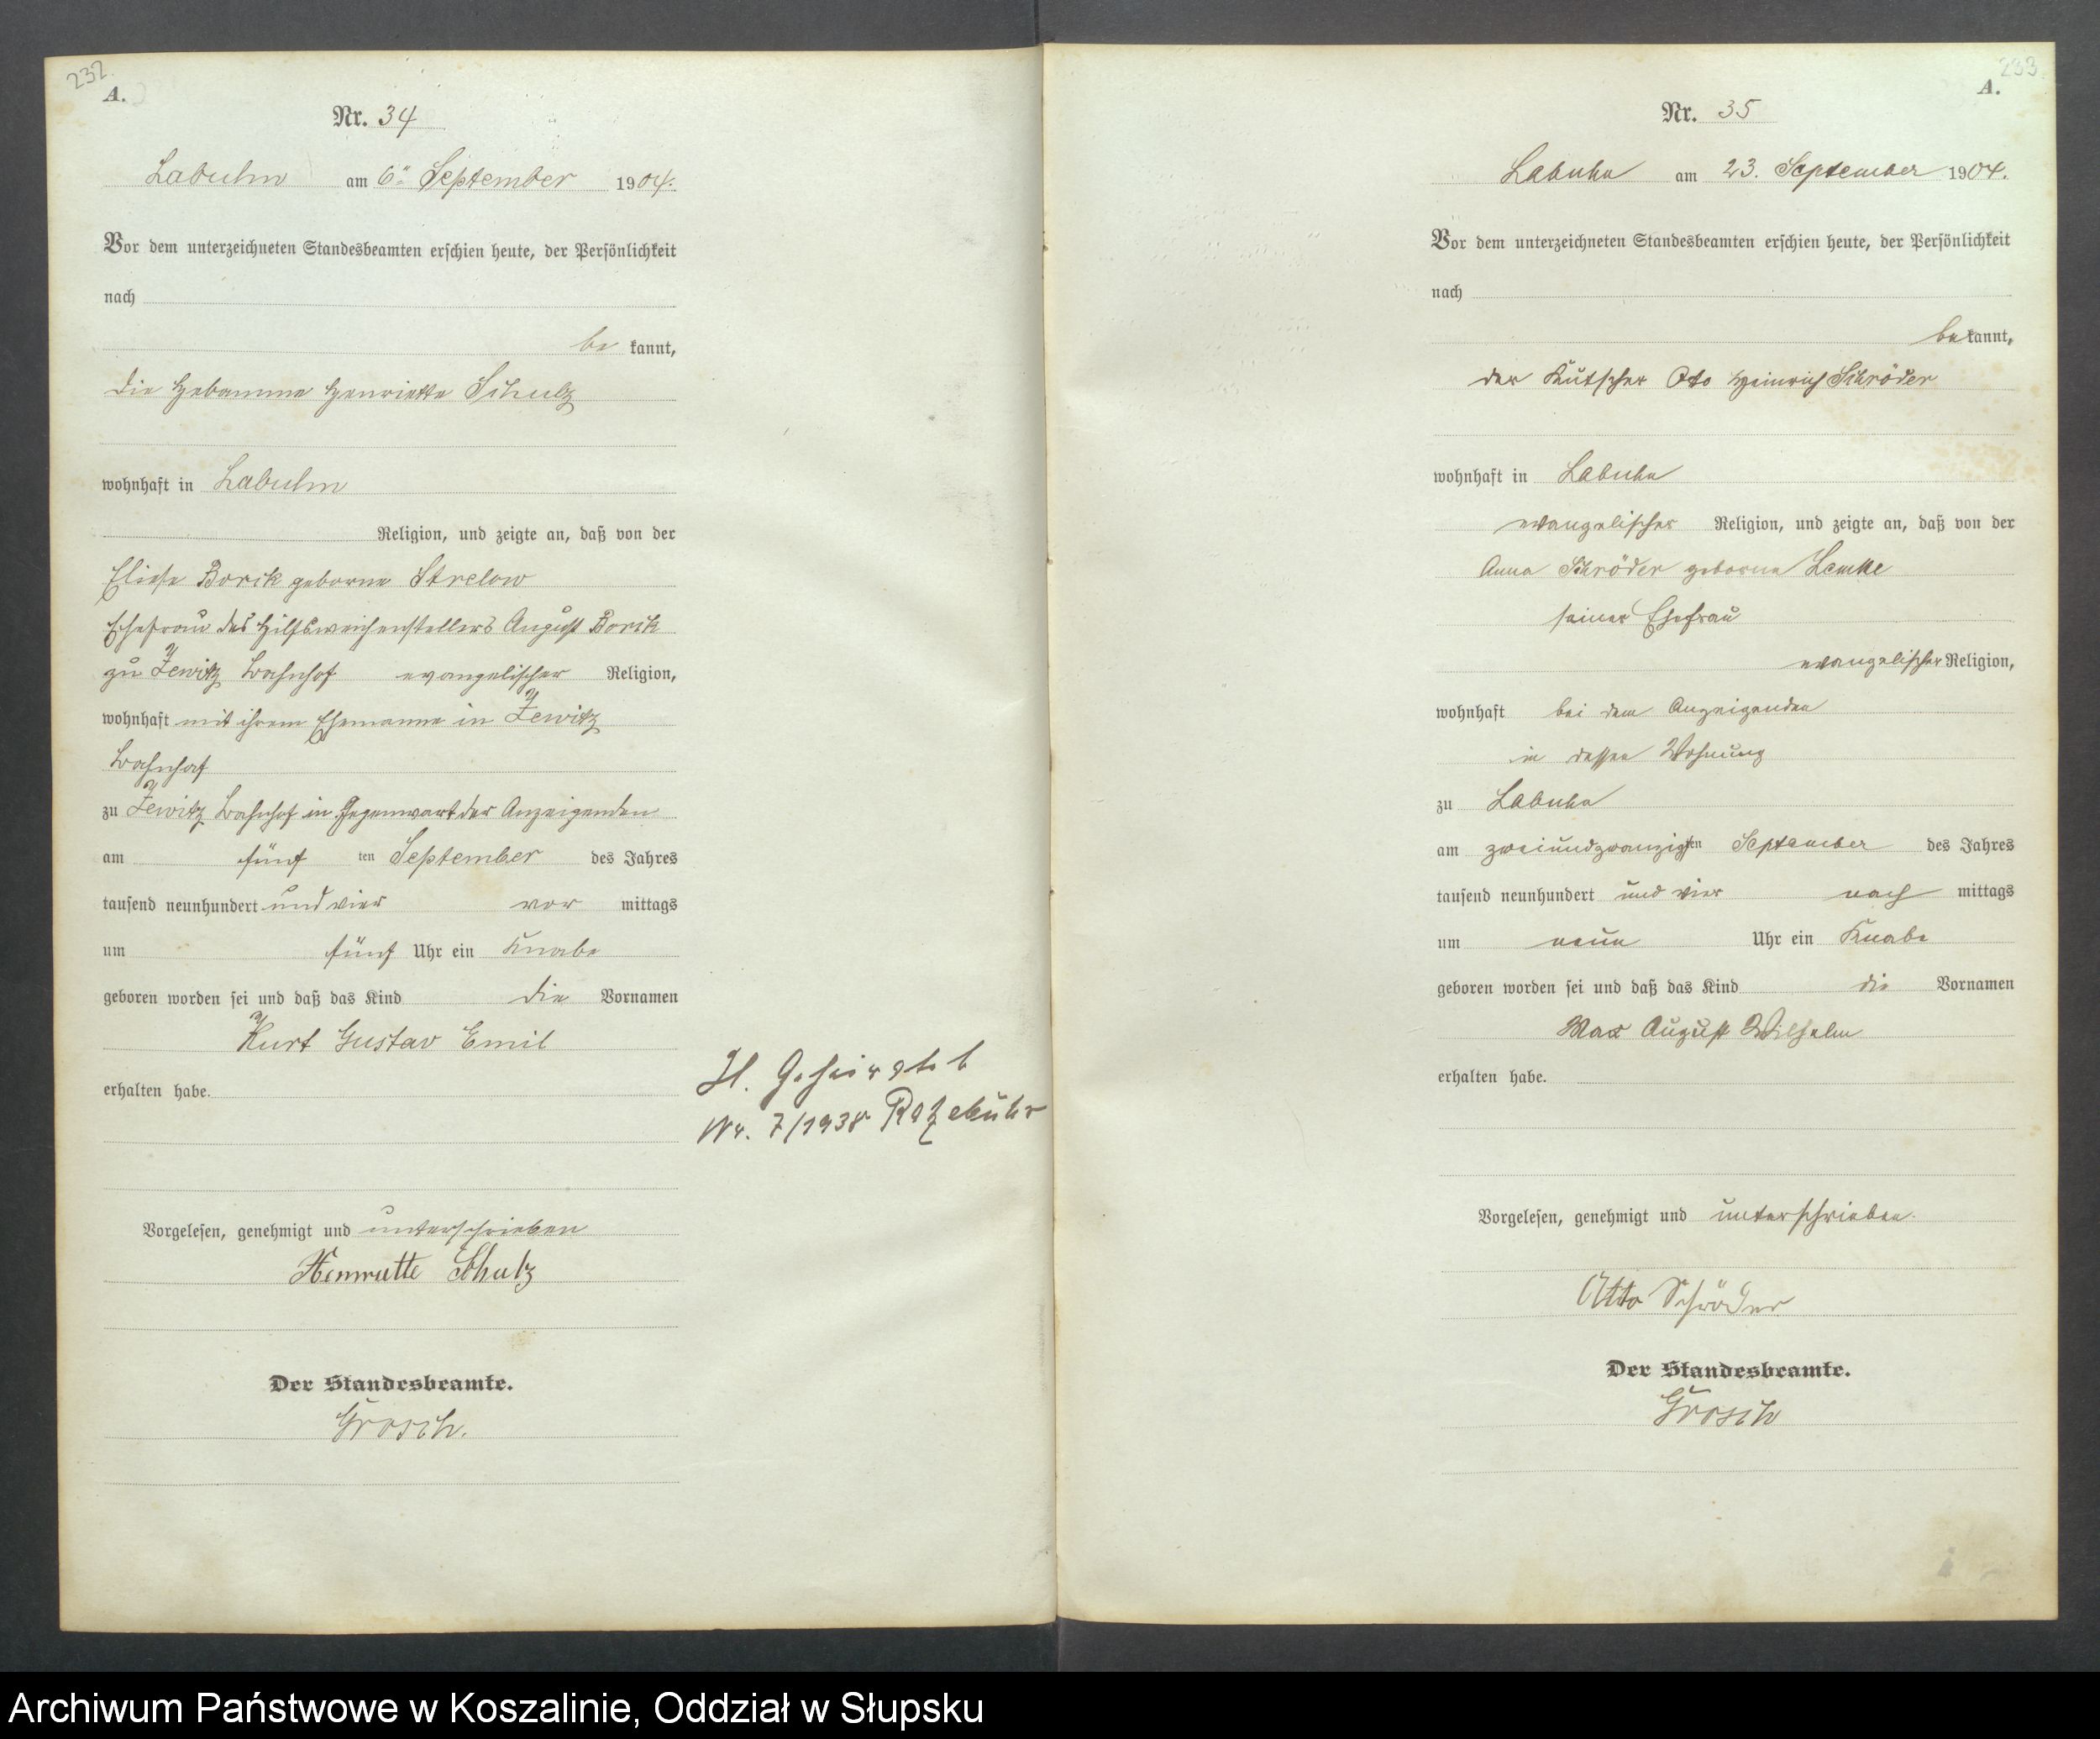 232
A.
Nr. 34
Labuhn am 6ten September 1904.
Vor dem unterzeichneten Standesbeamten erschien heute, der Persönlichkeit
nach
be kannt,
die Hebamme Henriette Schulz
wohnhaft in Labuhn
Religion, und zeigte an, daß von der
Eliese Borck geborne Strelow
Ehefrau des Hilfsweichenstellers August Borck
zu Zewitz Bahnhof evangelischer Religion,
wohnhaft mit ihrem Ehemanne in Zewitz
Bahnhof
zu Zewitz Bahnhof in Gegenwart der Anzeigenden
am fünf ten September des Jahres
tausend neunhundert und vier vor mittags
um fünf Uhr ein Knabe
geboren worden sei und daß das Kind die Vornamen
Kurt Gustav Emil
erhalten habe.
Vorgelesen, genehmigt und unterschrieben
Henriette Schulz
Der Standesbeamte.
Grosch.
Geheiratet
Nr. 7/1938 Ratzebuhr
233
A.
Nr. 35
Labuhn am 23. September 1904.
Vor dem unterzeichneten Standesbeamten erschien heute, der Persönlichkeit
nach
bekannt,
der Kutscher Otto Heinrich Schröder
wohnhaft in Labuhn
evangelischer Religion, und zeigte an, daß von der
Anna Schröder geborne Lemke
seiner Ehefrau
evangelischer Religion,
wohnhaft bei dem Anzeigenden
in dessen Wohnung
zu Labuhn
am zweiundzwanzigsten September des Jahres
tausend neunhundert und vier nach mittags
um neun Uhr ein Knabe
geboren worden sei und daß das Kind die Vornamen
Max August Wilhelm
erhalten habe.
Vorgelesen, genehmigt und unterschrieben.
Otto Schröder
Der Standesbeamte.
Grosch
Archiwum Państwowe w Koszalinie, Oddział w Słupsku